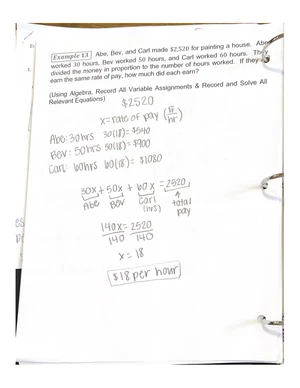 Example 13 Abe, Bev, and Carl made $2,520 for painting a house. Abe
worked 30 hours, Bev worked 50 hours, and Carl worked 60 hours. They
divided the money in proportion to the number of hours worked. If they
earn the same rate of pay, how much did each earn?
(Using Algebra, Record All Variable Assignments & Record and Solve All
Relevant Equations)
$2520
x = rate of pay ($/hr)
Abe: 30 hrs 30(18) = $540
Bev: 50 hrs 50(18) = $900
Carl: 60 hrs 60(18) = $1080
30x + 50x + 60x = 2520
Abe Bev Carl total
(hrs) pay
140x = 2520
140 140
x = 18
$18 per hour